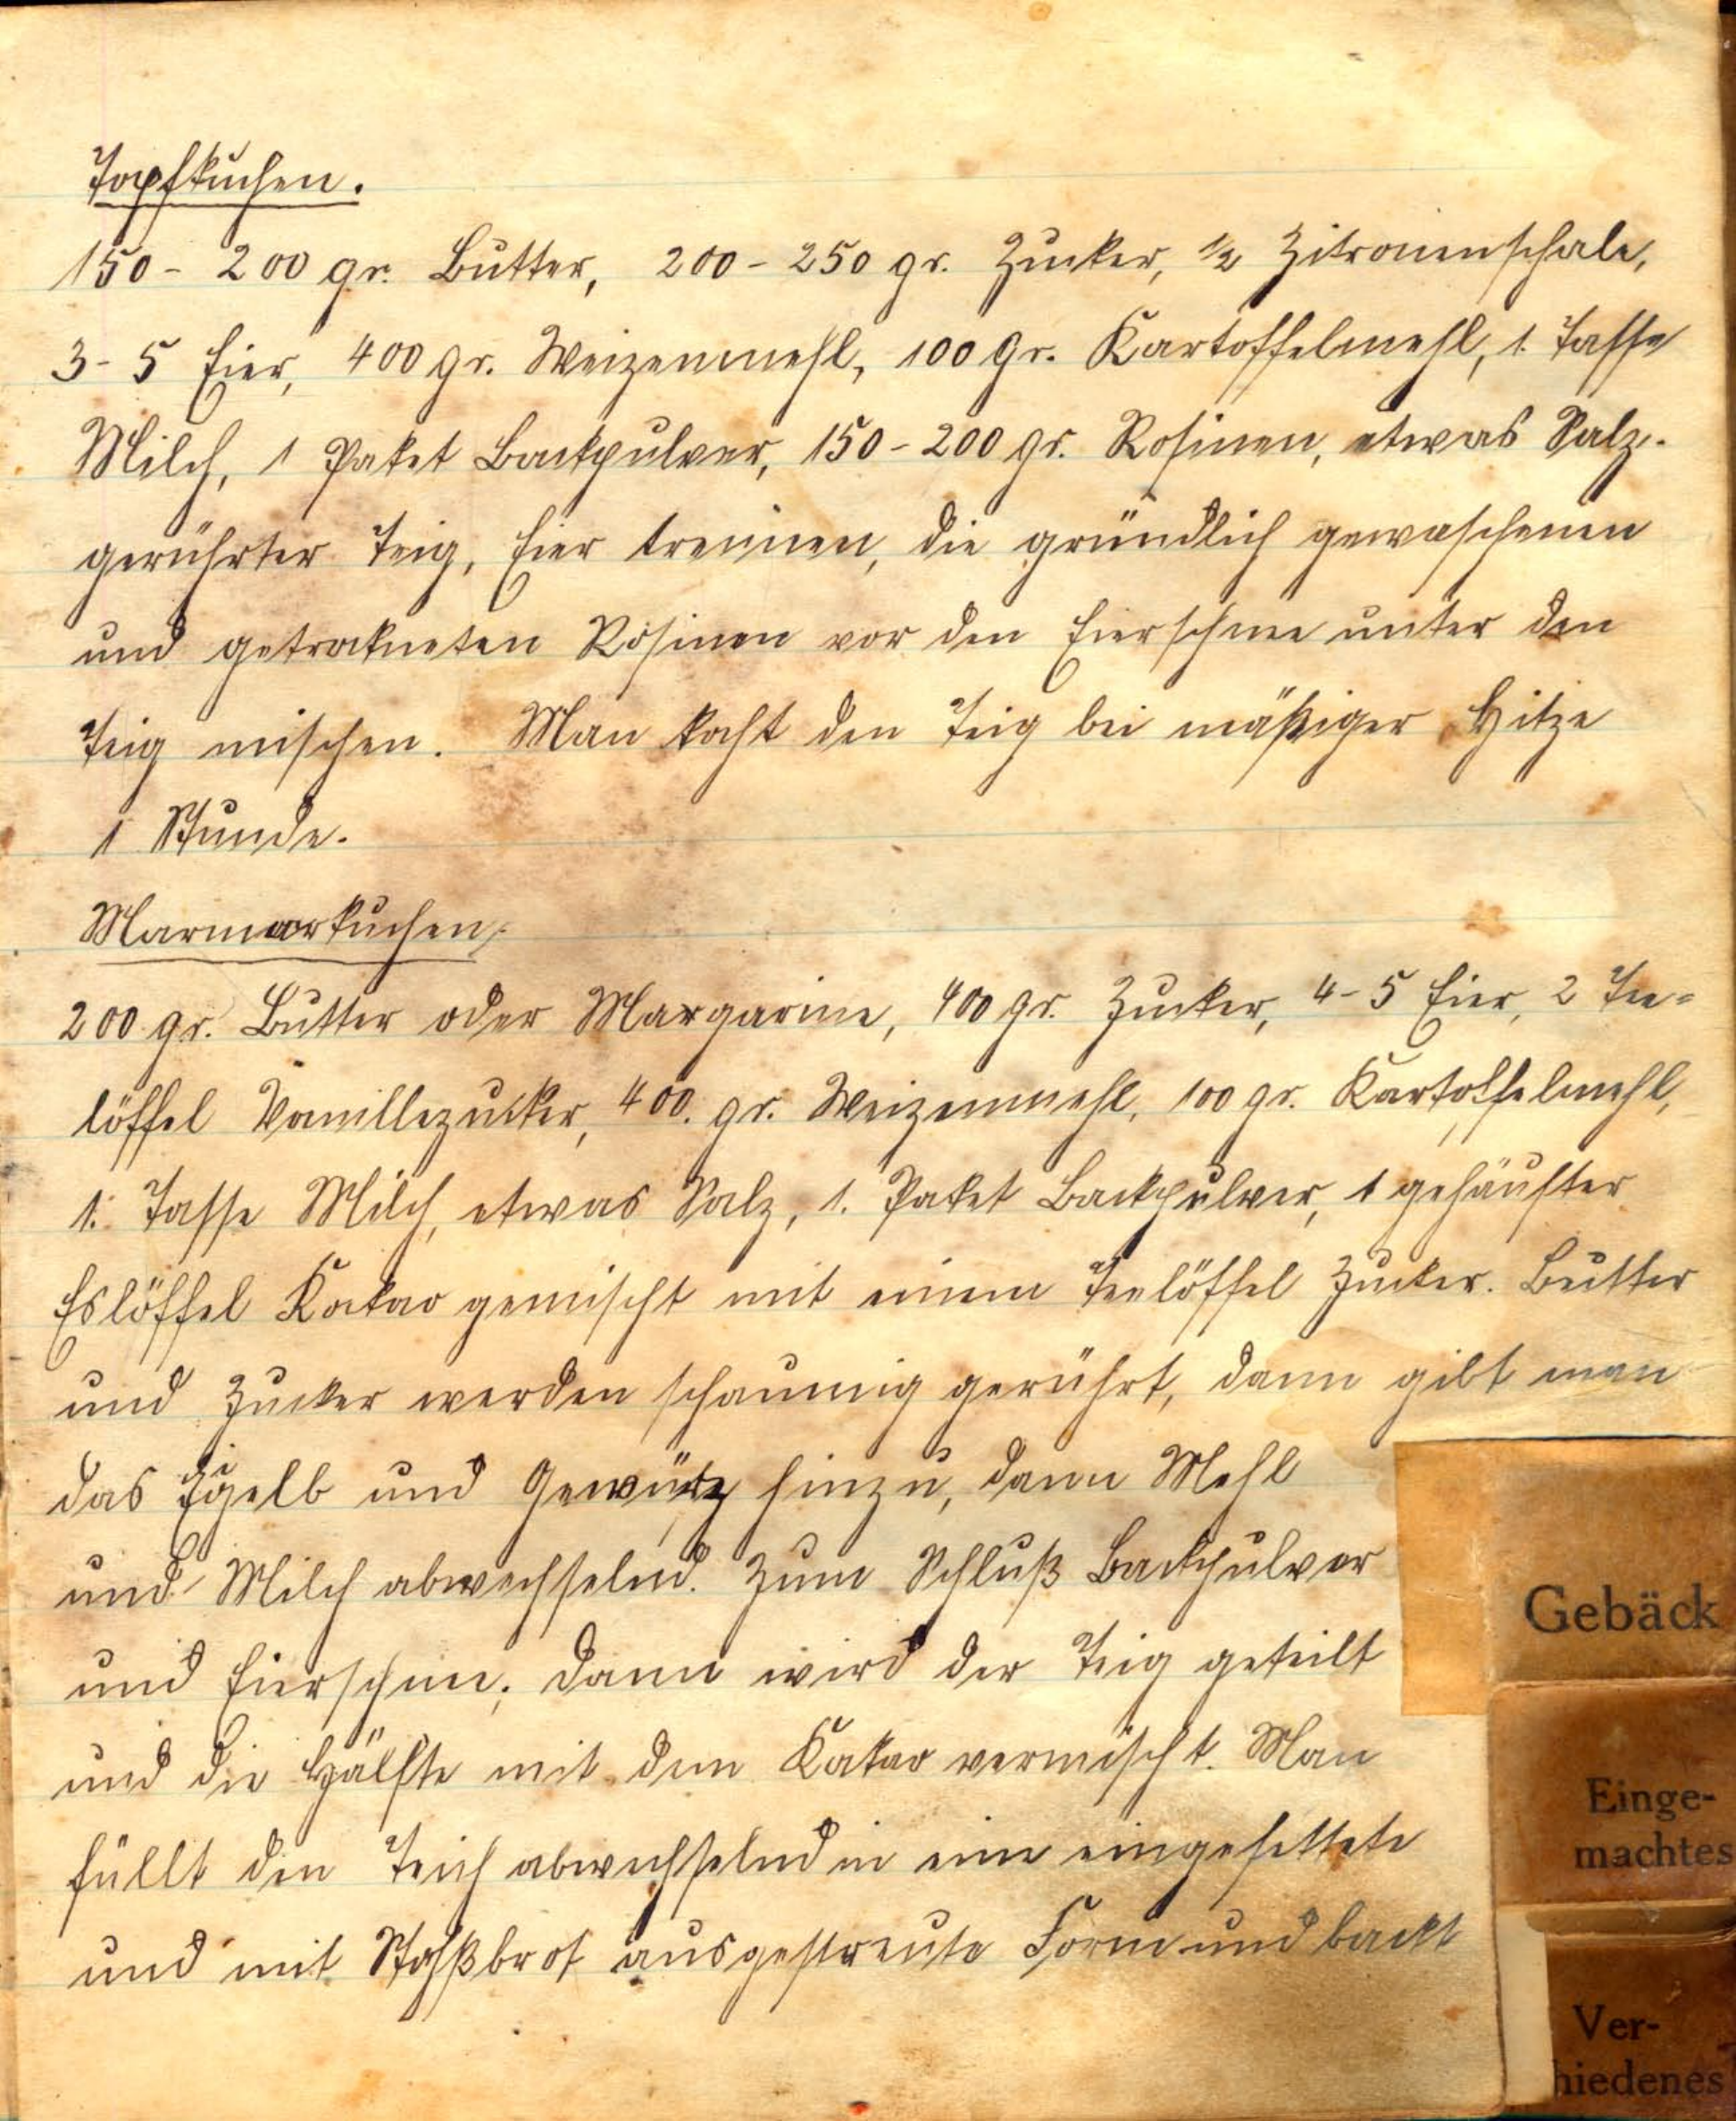 Topfkuchen.
150 - 200 gr. Butter, 200 - 250 gr. Zucker, ½ Zitronenschale,
3 - 5 Eier, 400 gr. Weizenmehl, 100 gr. Kartoffelmehl, 1. Tasse
Milch, 1 Paket Backpulver, 150 - 200 gr. Rosinen, etwas Salz.
gerührter Teig, Eier trennen, die gründlich gewaschenen
und getrockneten Rosinen vor den Eierschnee unter den
Teig mischen. Man kocht den Teig bei mäßiger Hitze
1 Stunde.
Marmorkuchen.
200 gr. Butter oder Margarine, 400 gr. Zucker, 4 - 5 Eier, 2 Tee=
löffel Vanillezucker, 400. gr. Weizenmehl, 100 gr. Kartoffelmehl,
1. Tasse Milch, etwas Salz, 1. Paket Backpulver, 1 gehäufter
Eslöffel Kakao gemischt mit einem Teelöffel Zucker. Butter
und Zucker werden schaumig gerührt, dann gibt man
das Eigelb und Gewürz hinzu, dann Mehl
und Milch abwechselnd. Zum Schluß Backpulver
und Eierschnee. Dann wird der Teig geteilt
und die Hälfte mit dem Kakao vermischt. Man
füllt den Teich abwechselnd in eine eingefettete
und mit ausgestreute Form und backt
Gebäck
Einge-
machtes
Ver-
hiedenes